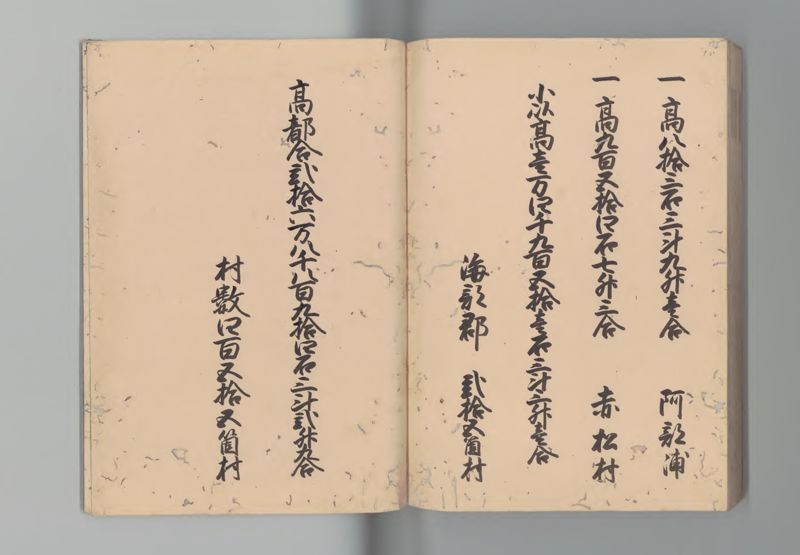 一高八拾三石三斗九升壱合 阿部浦
一高九百五拾四石七升三合 赤松村
小以高壱万四千九百五拾壱石三斗六升壱合
海部郡 弐拾五箇村
高都合弐拾六万八千八百九拾四石三斗弐升九合
村数四百五拾五箇村